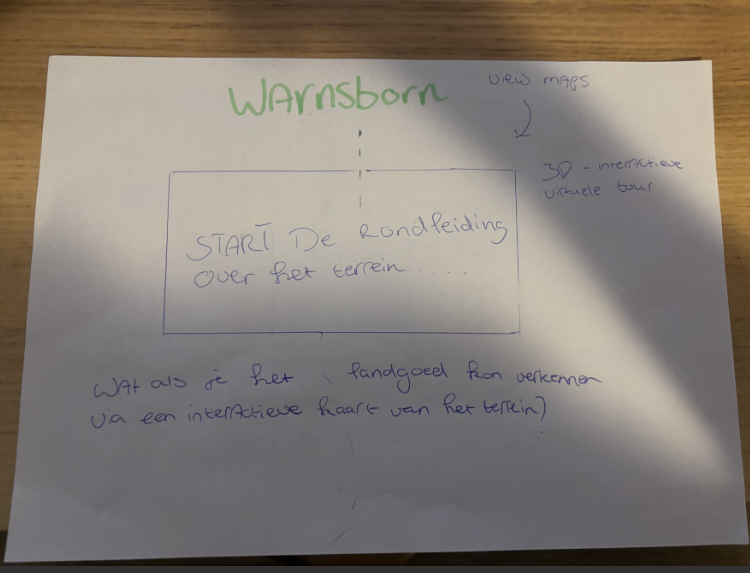 WArnsborn
view maps
3D - interActieve
virtuele tour
START De Rondleiding
over het terrein ....
WAt als je het landgoed kon verkennen
via een interActieve kaart van het terrein?